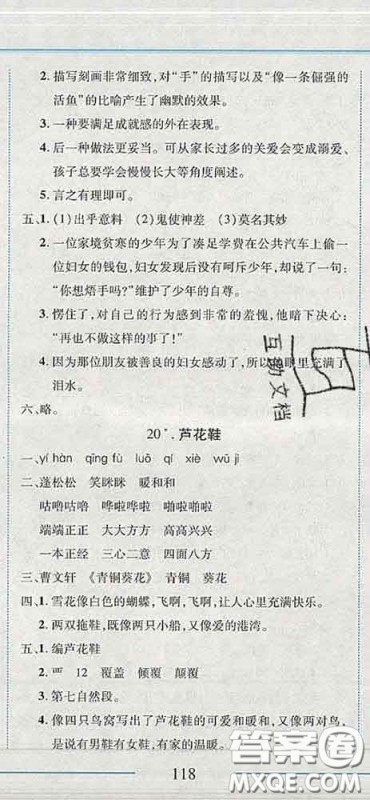 2. 描写刻画非常细致，对“手”的描写以及“像一条倔强的
活鱼”的比喻产生了幽默的效果。
3. 一种要满足成就感的外在表现。
4. 后一种做法更妥当。可从家长过多的关爱会变成溺爱、
孩子总要学会慢慢长大等角度阐述。
5. 言之有理即可。
五、1. (1)出乎意料 (2)鬼使神差 (3)莫名其妙
2. 一位家境贫寒的少年为了凑足学费在公共汽车上偷一
位妇女的钱包，妇女发现后没有呵斥少年，却说了一句：
“你想焐手吗？”维护了少年的自尊。
3. 愣住了，对自己的行为感到非常的羞愧，他暗下决心：
“再也不做这样的事了！”
4. 因为那位朋友被善良的妇女感动了，所以眼里充满了
泪水。
六、略。
20*. 芦花鞋
一、yí hàn qīng fù luō qí xié wū jī
二、蓬松松 笑眯眯 暖和和
咕噜咕噜 哗啦哗啦 啪啦啪啦
端端正正 大大方方 高高兴兴
一本正经 三心二意 四面八方
三、曹文轩 《青铜葵花》 青铜 葵花
四、1. 雪花像白色的蝴蝶，飞啊，飞啊，让人心里充满快乐。
2. 两双拖鞋，既像两只小船，又像爱的港湾。
五、1. 编芦花鞋
2. 覀 12 覆盖 倾覆 颠覆
3. 第七自然段。
4. 像四只鸟窝写出了芦花鞋的可爱和暖和，又像两对鸟，
是说有男鞋有女鞋，有家的温暖。
118
互助文档
答案圈
MXQE.COM